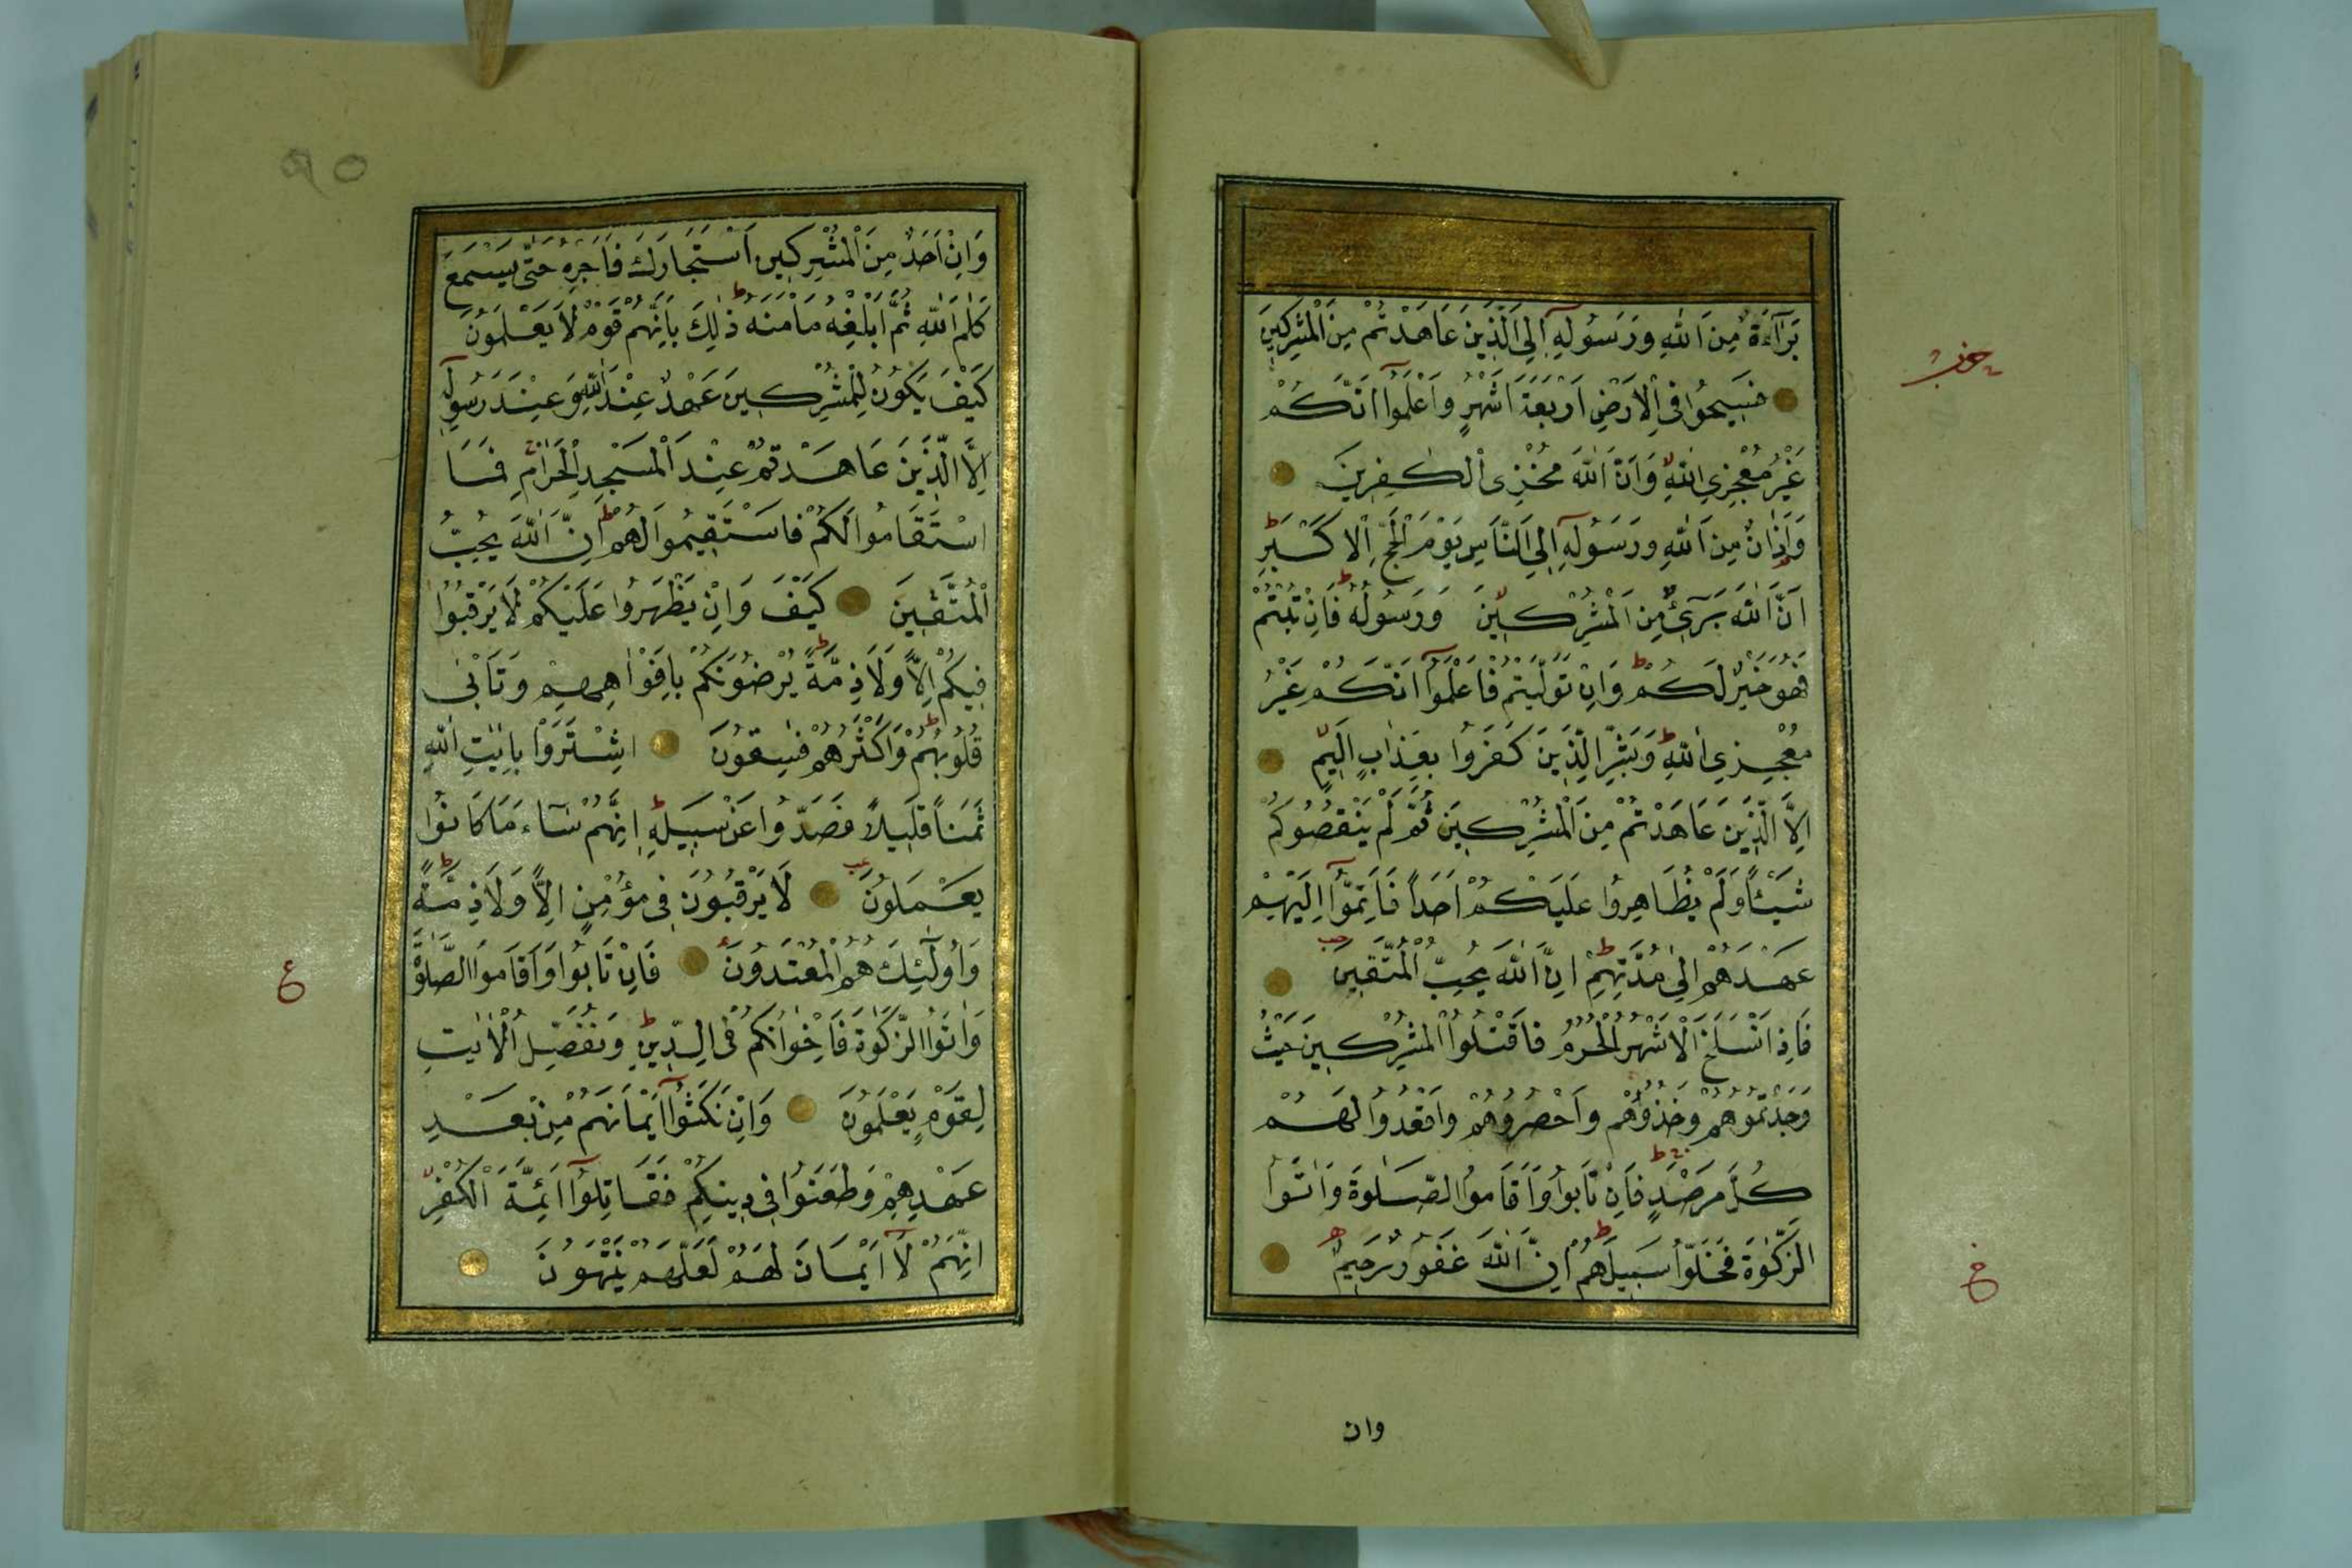 بَرَآءَةٌ مِنَ اللّٰهِ وَرَسُولِهِ اِلَى الَّذِينَ عَاهَدْتُمْ مِنَ الْمُشْرِكِينَ
فَسِيحُوا فِى الْاَرْضِ اَرْبَعَةَ اَشْهُرٍ وَاعْلَمُوا اَنَّكُمْ
غَيْرُ مُعْجِزِي اللّٰهِ وَاَنَّ اللّٰهَ مُخْزِى الْكٰفِرِينَ
وَاَذَانٌ مِنَ اللّٰهِ وَرَسُولِهِ اِلَى النَّاسِ يَوْمَ الْحَجِّ الْاَكْبَرِ
اَنَّ اللّٰهَ بَرِىءٌ مِنَ الْمُشْرِكِينَ وَرَسُولُهُ فَاِنْ تُبْتُمْ
فَهُوَ خَيْرٌ لَكُمْ وَاِنْ تَوَلَّيْتُمْ فَاعْلَمُوا اَنَّكُمْ غَيْرُ
مُعْجِزِي اللّٰهِ وَبَشِّرِ الَّذِينَ كَفَرُوا بِعَذَابٍ اَلِيمٍ
اِلَّا الَّذِينَ عَاهَدْتُمْ مِنَ الْمُشْرِكِينَ ثُمَّ لَمْ يَنْقُصُوكُمْ
شَيْئًا وَلَمْ يُظَاهِرُوا عَلَيْكُمْ اَحَدًا فَاَتِمُّوا اِلَيْهِمْ
عَهْدَهُمْ اِلٰى مُدَّتِهِمْ اِنَّ اللّٰهَ يُحِبُّ الْمُتَّقِينَ
فَاِذَا انْسَلَخَ الْاَشْهُرُ الْحُرُمُ فَاقْتُلُوا الْمُشْرِكِينَ حَيْثُ
وَجَدْتُمُوهُمْ وَخُذُوهُمْ وَاحْصُرُوهُمْ وَاقْعُدُوا لَهُمْ
كُلَّ مَرْصَدٍ فَاِنْ تَابُوا وَاَقَامُوا الصَّلٰوةَ وَاٰتَوُا
الزَّكٰوةَ فَخَلُّوا سَبِيلَهُمْ اِنَّ اللّٰهَ غَفُورٌ رَحِيمٌ
وان
وَاِنْ اَحَدٌ مِنَ الْمُشْرِكِينَ اسْتَجَارَكَ فَاَجِرْهُ حَتّٰى يَسْمَعَ
كَلٰمَ اللّٰهِ ثُمَّ اَبْلِغْهُ مَأْمَنَهُ ذٰلِكَ بِاَنَّهُمْ قَوْمٌ لَا يَعْلَمُونَ
كَيْفَ يَكُونُ لِلْمُشْرِكِينَ عَهْدٌ عِنْدَ اللّٰهِ وَعِنْدَ رَسُولِهِ
اِلَّا الَّذِينَ عَاهَدْتُمْ عِنْدَ الْمَسْجِدِ الْحَرَامِ فَمَا
اسْتَقَامُوا لَكُمْ فَاسْتَقِيمُوا لَهُمْ اِنَّ اللّٰهَ يُحِبُّ
الْمُتَّقِينَ كَيْفَ وَاِنْ يَظْهَرُوا عَلَيْكُمْ لَا يَرْقُبُوا
فِيكُمْ اِلًّا وَلَا ذِمَّةً يُرْضُونَكُمْ بِاَفْوَاهِهِمْ وَتَأْبٰى
قُلُوبُهُمْ وَاَكْثَرُهُمْ فٰسِقُونَ اِشْتَرَوْا بِاٰيٰتِ اللّٰهِ
ثَمَنًا قَلِيلًا فَصَدُّوا عَنْ سَبِيلِهِ اِنَّهُمْ سَاءَ مَا كَانُوا
يَعْمَلُونَ لَا يَرْقُبُونَ فِى مُؤْمِنٍ اِلًّا وَلَا ذِمَّةً
وَاُولٰئِكَ هُمُ الْمُعْتَدُونَ فَاِنْ تَابُوا وَاَقَامُوا الصَّلٰوةَ
وَاٰتَوُا الزَّكٰوةَ فَاِخْوَانُكُمْ فِى الدِّينِ وَنُفَصِّلُ الْاٰيٰتِ
لِقَوْمٍ يَعْلَمُونَ وَاِنْ نَكَثُوا اَيْمَانَهُمْ مِنْ بَعْدِ
عَهْدِهِمْ وَطَعَنُوا فِى دِينِكُمْ فَقَاتِلُوا اَئِمَّةَ الْكُفْرِ
اِنَّهُمْ لَا اَيْمَانَ لَهُمْ لَعَلَّهُمْ يَنْتَهُونَ
ع